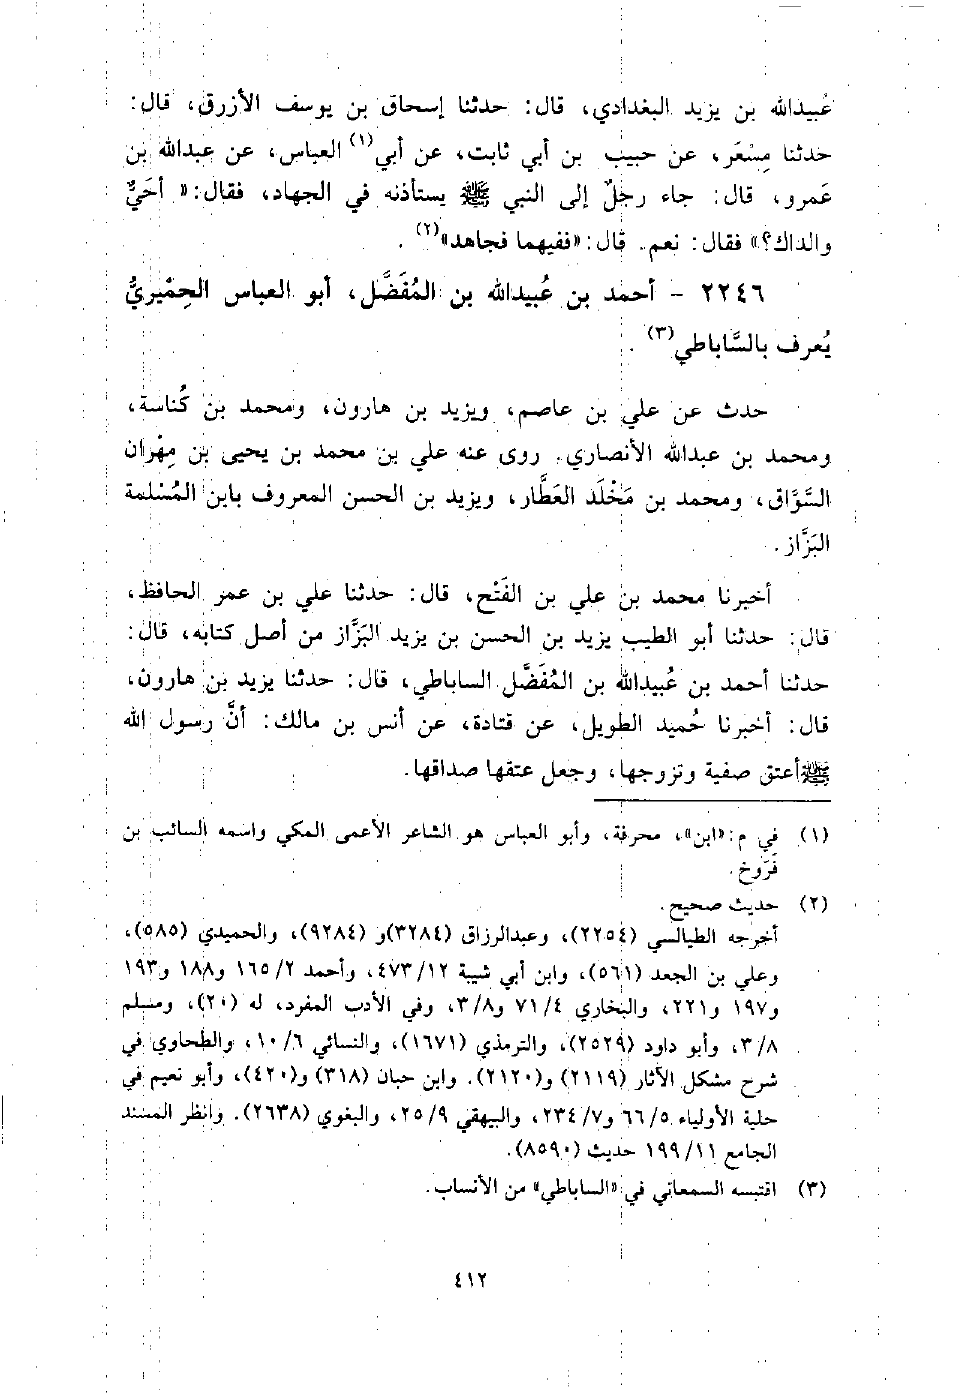 عُبيدالله بن يزيد البغدادي، قال: حدثنا إسحاق بن يوسف الأزرق، قال:
حدثنا مِسْعَر، عن حبيب بن أبي ثابت، عن أبي(١) العباس، عن عبدالله بن
عَمرو، قال: جاء رجلٌ إلى النبي ﷺ يستأذنه في الجهاد، فقال: «أحَيٌّ
والداك؟» فقال: نعم. قال: «ففيهما فجاهد»(٢).
٢٢٤٦ - أحمد بن عُبيدالله بن المُفَضَّل، أبو العباس الحِمْيريُّ
يُعرف بالسَّاباطي(٣).
حدث عن علي بن عاصم، ويزيد بن هارون، ومحمد بن كُناسة،
ومحمد بن عبدالله الأنصاري. روى عنه علي بن محمد بن يحيى بن مِهْران
السَّوَّاق، ومحمد بن مَخْلَد العَطَّار، ويزيد بن الحسن المعروف بابن المُسْلمة
البَزَّاز.
أخبرنا محمد بن علي بن الفَتْح، قال: حدثنا علي بن عمر الحافظ،
قال: حدثنا أبو الطيب يزيد بن الحسن بن يزيد البَزَّاز من أصل كتابه، قال:
حدثنا أحمد بن عُبيدالله بن المُفَضَّل الساباطي، قال: حدثنا يزيد بن هارون،
قال: أخبرنا حُميد الطويل، عن قتادة، عن أنس بن مالك: أنَّ رسول الله
ﷺ أعتق صفية وتزوجها، وجعل عتقها صداقها.
(١) في م: «ابن»، محرفة، وأبو العباس هو الشاعر الأعمى المكي واسمه السائب بن
فَرّوخ.
(٢) حديث صحيح.
أخرجه الطيالسي (٢٢٥٤)، وعبدالرزاق (٣٢٨٤) و (٩٢٨٤)، والحميدي (٥٨٥)،
وعلي بن الجعد (٥٦١)، وابن أبي شيبة ١٢/ ٤٧٣، وأحمد ٢/ ١٦٥ و١٨٨ و١٩٣
و١٩٧ و٢٢١، والبخاري ٤/ ٧١ و٨/ ٣، وفي الأدب المفرد، له (٢٠)، ومسلم
٨/ ٣، وأبو داود (٢٥٢٩)، والترمذي (١٦٧١)، والنسائي ٦/ ١٠، والطحاوي في
شرح مشكل الآثار (٢١١٩) و(٢١٢٠). وابن حبان (٣١٨) و(٤٢٠)، وأبو نعيم في
حلية الأولياء ٥/ ٦٦ و٧/ ٢٣٤، والبيهقي ٩/ ٢٥، والبغوي (٢٦٣٨). وانظر المسند
الجامع ١١/ ١٩٩ حديث (٨٥٩٠).
(٣) اقتبسه السمعاني في «الساباطي» من الأنساب.
٤١٢